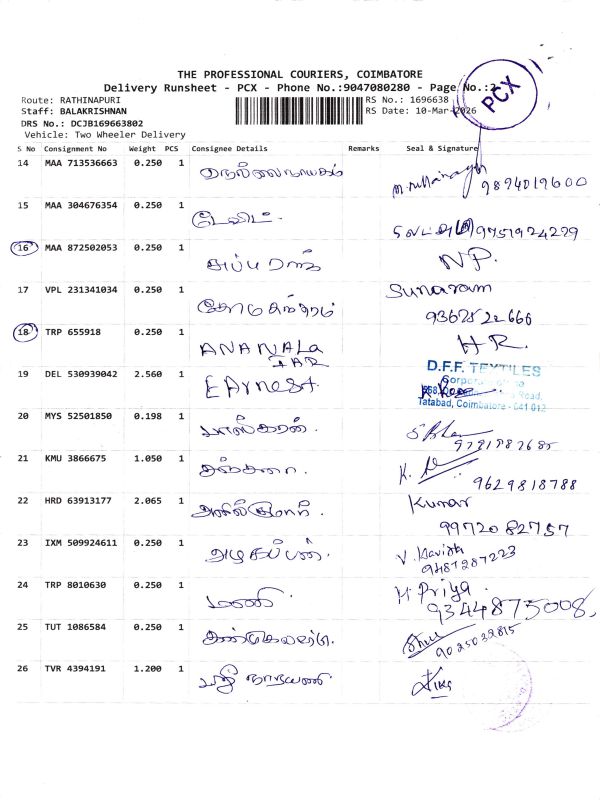 THE PROFESSIONAL COURIERS, COIMBATORE
Delivery Runsheet - PCX - Phone No.:9047080280 - Page No.:2
PCX
Route: RATHINAPURI
RS No.: 1696638
Staff: BALAKRISHNAN
RS Date: 10-Mar-2026
DRS No.: DCJB169663802
Vehicle: Two Wheeler Delivery
S No Consignment No Weight PCS Consignee Details Remarks Seal & Signature
14 MAA 713536663 0.250 1 நெல்லைநாயகம் 9894019600
15 MAA 304676354 0.250 1 டேவிட். 9751924229
16 MAA 872502053 0.250 1 சுப்புராஜ் NP.
17 VPL 231341034 0.250 1 சோமசுந்தரம் Sunaram
9367522666
18 TRP 655918 0.250 1 ANANJALa HR.
19 DEL 530939042 2.560 1 EArnest
D.F.F. TEXTILES
Tatabad, Coimbatore - 641 012
20 MYS 52501850 0.198 1 பாஸ்கரன்.
21 KMU 3866675 1.050 1 K.
9629818788
22 HRD 63913177 2.065 1 அனில்குமார். Kumar
9972082757
23 IXM 509924611 0.250 1 அழகப்பன். V. Kavitha
9487287223
24 TRP 8010630 0.250 1 மணி. M Priya.
9344875008,
25 TUT 1086584 0.250 1
9025032815
26 TVR 4394191 1.200 1 ஸ்ரீ நாராயணி.